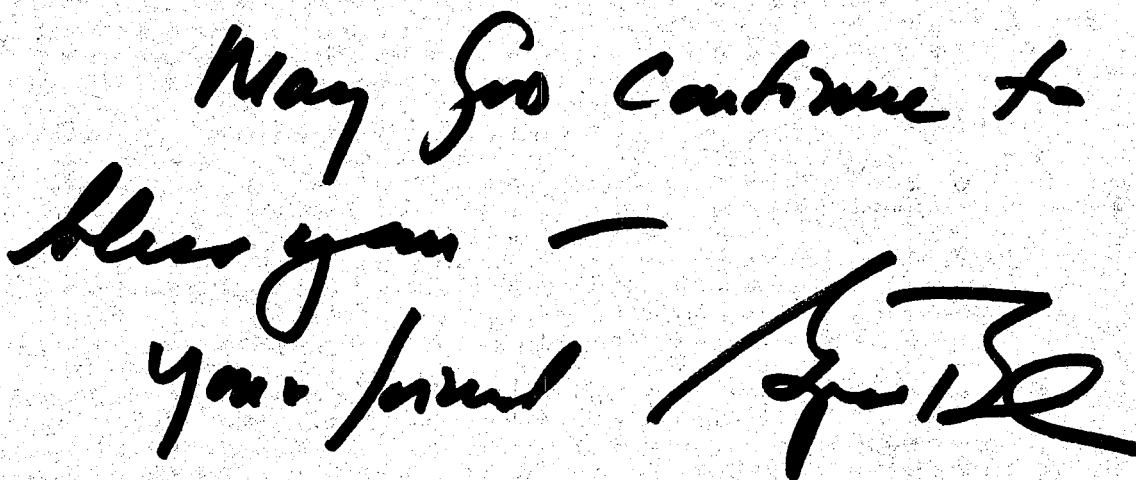 May God continue to
bless you —
your friend